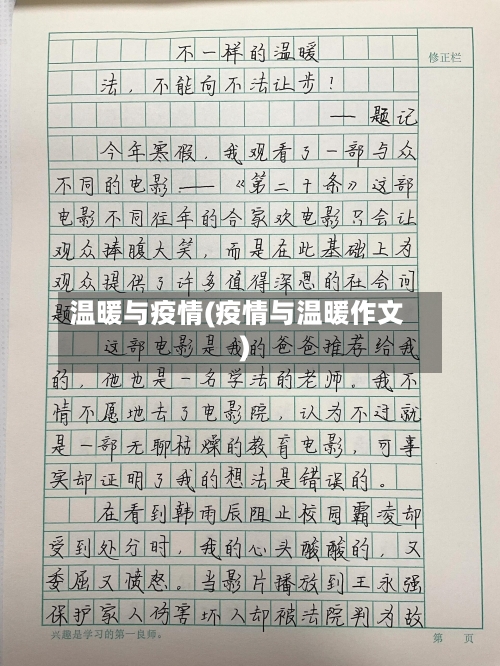 不一样的温暖
修正栏
法，不能向不法让步！
——题记
今年寒假，我观看了一部与众
不同的电影——《第二十条》这部
电影不同往年的合家欢电影只会让
观众捧腹大笑，而是在此基础上为
观众提供了许多值得深思的社会问
题
温暖与疫情(疫情与温暖作文
)
这部电影是我的爸爸推荐给我
的，他也是一名学法的老师。我不
情不愿地去了电影院，认为不过就
是一部无聊枯燥的教育电影，可事
实却证明了我的想法是错误的。
在看到韩雨辰阻止校园霸凌却
受到处分时，我的心头酸酸的，又
委屈又愤怒。当影片播放到王永强
保护家人伤害坏人却被法院判为故
兴趣是学习的第一良师。
第 页